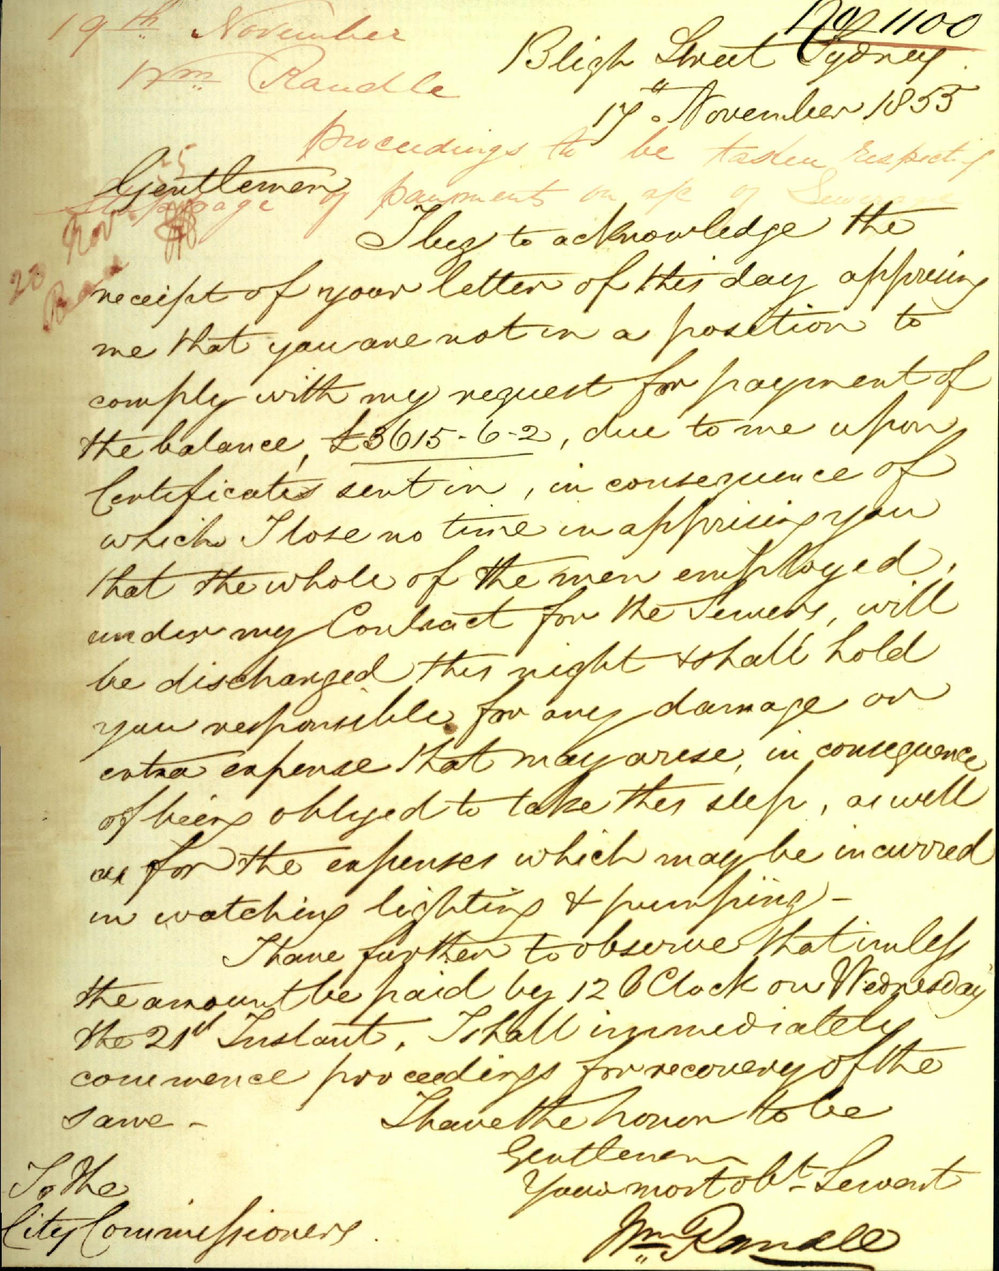 No 1100
19th November
Wm Randle
Bligh Street Sydney
17th November 1855
proceedings to be taken respecting
stoppage of payments on a/c of Sewerage
Gentlemen
23 Nov 55
I beg to acknowledge the
receipt of your letter of this day apprising
me that you are not in a position to
comply with my request for payment of
the balance, £3615-6-2, due to me upon
Certificates sent in, in consequence of
which I lose no time in apprising you
that the whole of the men employed,
under my Contract for the Sewers, will
be discharged this night & shall hold
you responsible for any damage or
extra expense that may arise, in consequence
of being obliged to take this step, as well
as for the expenses which may be incurred
in watching lighting & pumping -
I have further to observe that unless
the amount be paid by 12 OClock on Wednesday
the 21st Instant, I shall immediately
commence proceedings for recovery of the
same -
I have the honor to be
Gentlemen
Your most obt. Servant
Wm Randle
To the
City Commissioners